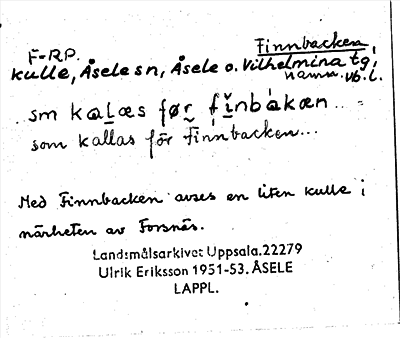 Finnbacken,
F-RP.
kulle, Åsele sn, Åsele o. Vilhelmina tg,
namn. vb. l.
sm kalæs før finbakæn..
som kallas för Finnbacken...
Med Finnbacken avses en liten kulle i
närheten av Forsnäs.
Landsmålsarkivet Uppsala.22279
Ulrik Eriksson 1951-53. ÅSELE
LAPPL.